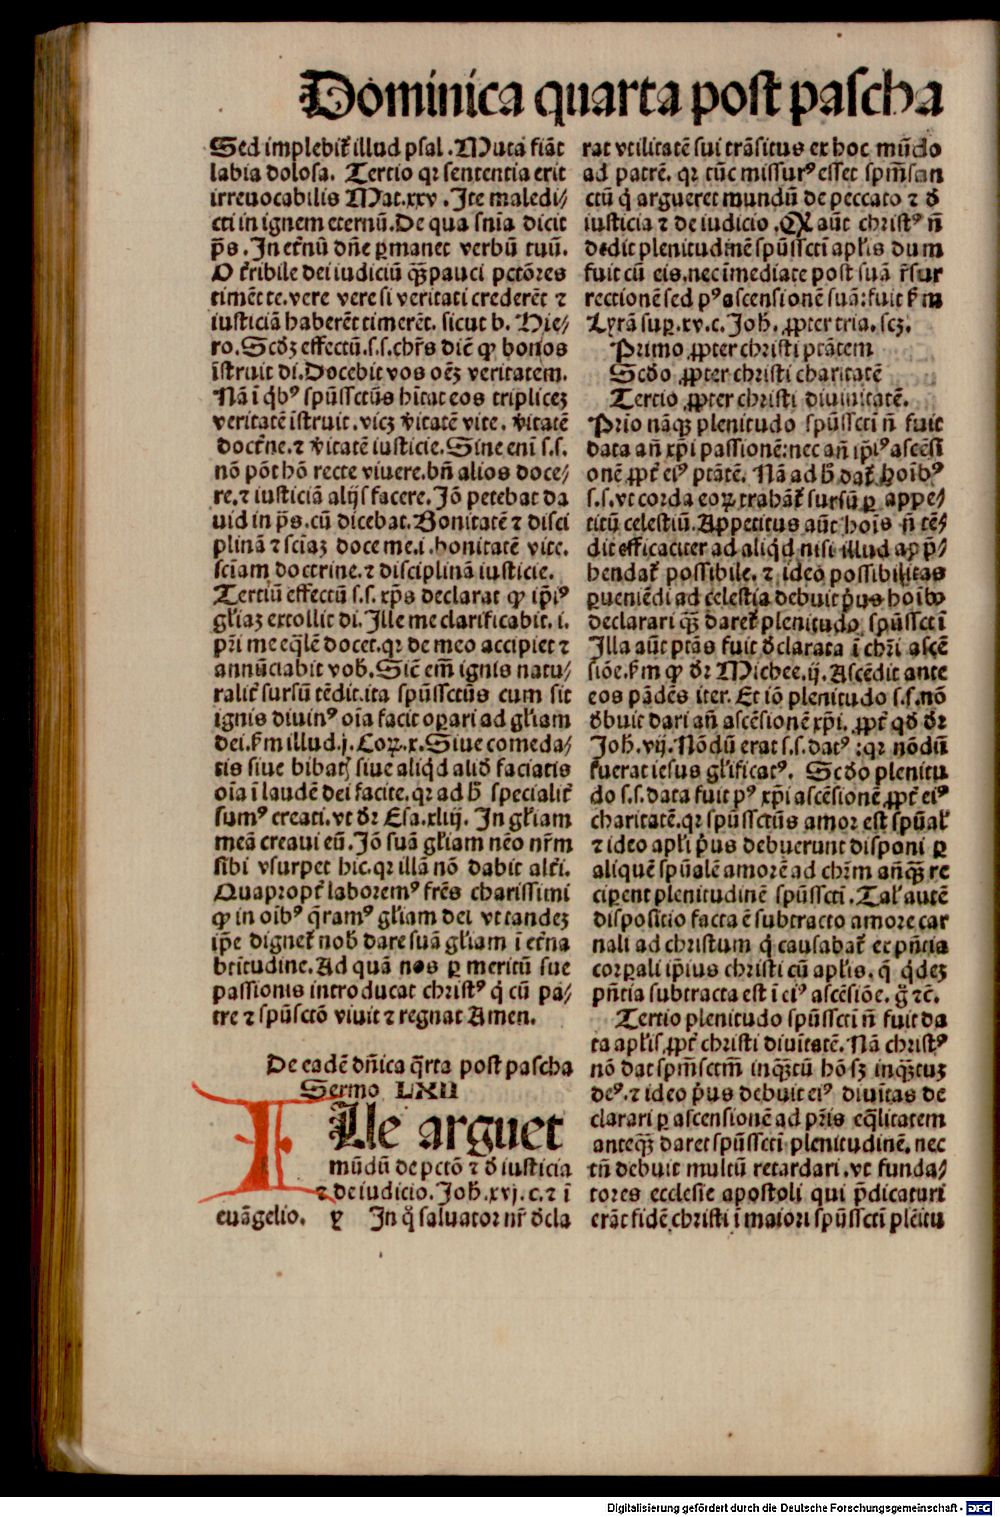 Dominica quarta post pascha
Sed implebit᷑ illud psal. Muta fiāt
labia dolosa. Tertio qꝛ sententia erit
irreuocabilis Mat.xxv. Ite maledi/
cti in ignem eternū. De qua snīa dicit
p̄s. In et̄nū dn̄e ꝑmanet verbū tuū.
O t̄ribile dei iudiciū qꝫ pauci pctōres
timēt te. vere vere si veritati crederēt ⁊
iusticiā haberēt timerēt. sicut b. Hie/
ro. Scd́ꝫ effectū .s.s. chr̄s diē ꝙ bonos
īstruit di. Docebit vos oēꝫ veritatem.
Nā ī qb́ꝰ spūssctūs hītat eos tripliceꝫ
veritatē īstruit. vicꝫ v̄itatē vite. v̄itatē
doct̄ne. ⁊ v̄itatē iusticie. Sine eni s.s.
nō pōt hō recte viuere. bn̄ alios doce/
re. ⁊ iusticiā alijs facere. Jō petebat da
uid in p̄s. cū dicebat. Bonitatē ⁊ disci
plinā ⁊ sciaꝫ doce me.i. bonitatē vite.
sciam doctrine. ⁊ disciplinā iusticie.
Tertiū effectū s.s. xp̄s declarat ꝙ ip̄iꝰ
gl̄iaꝫ extollit di. Ille me clarificabit. i.
pr̄i me eq̄lē docet. qꝛ de meo accipiet ⁊
annūciabit vob̄. Sic̄ em̄ ignis natu/
ralit᷑ sursū tēdit. ita spūssctūs cum sit
ignis diuinꝰ oīa facit oꝑari ad gl̄iam
dei. ẜm illud .j. Coꝝ.x. Siue comeda/
tis siue bibatꝭ siue aliqd́ aliđ faciatis
oīa ī laudē dei facite. qꝛ ad ħ specialit᷑
sumꝰ creati. vt đr Esa.xliij. In gl̄iam
meā creaui eū. Jō suā gl̄iam nēo nr̄m
sibi vsurpet hic. qꝛ illā nō dabit alt̄i.
Quapropt᷑ laboremꝰ fr̄es charissimi
ꝙ in oibꝰ q̄ramꝰ gl̄iam dei vt tandeꝫ
ip̄e dignet᷑ nob̄ dare suā gl̄iam ī et̄na
btītudine. Ad quā nos ꝑ meritū sue
passionis introducat christꝰ q̇ cū pa/
tre ⁊ spūsctō viuit ⁊ regnat Amen.
De eadē dn̄ica q̄rta post pascha
Sermo LXII
Ille arguet
mūdū de pctō ⁊ đ iusticia
⁊ de iudicio. Joh̄.xvj.c. ⁊ ī
euāgelio. In q̊ saluator nr̄ đcla
rat vtilitatē sui trāsitus ex hoc mūdo
ad patrē. qꝛ tūc missurꝰ esset spm̄ san
ctū q̇ argueret mundū de peccato ⁊ đ
iusticia ⁊ de iudicio. Q aūt christꝰ n̄
dedit plenitudinē spūsscti apl̄is dum
fuit cū eis. nec īmediate post suā r̄sur
rectionē sed pꝰ ascensionē suā: fuit ẜm
Lyrā suꝑ.xv.c. Joh̄. ꝓpter tria. scꝫ.
Primo ꝓpter christi ptātem
Scd́o ꝓpter christi charitatē
Tertio ꝓpter christi diuinitatē.
Prīo nāqꝫ plenitudo spūsscti n̄ fuit
data an̄ xp̄i passionē: nec an̄ ip̄iꝰ ascēsi
onē ꝓpt᷑ eiꝰ ptātē. Nā ad ħ dat᷑ ꝑ hoībꝰ
s.s. vt corda eoꝝ trahāt᷑ sursū ꝑ appe/
titū celestiū. Appetitus aūt hoīs n̄ tē/
dit efficaciter ad aliqd́ nisi illud app̄/
hendat᷑ possibile. ⁊ ideo possibilitas
ꝑueniēdi ad celestia debuit p̓us hoībꝰ
declarari qꝫ̄ daret᷑ plenitudo spūsscti
Illa aūt ptās fuit đclarata ī chr̄i ascē
siōe. ẜm ꝙ đr Michee.ij. Ascēdit ante
eos pādēs iter. Et iō plenitudo s.s. nō
đbuit dari an̄ ascēsionē xp̄i. ꝓpt᷑ qđ đr
Joh̄.vij. Nōdū erat s.s. datꝰ: qꝛ nōdū
fuerat iesus gl̄ificatꝰ. Scd́o plenitu
do s.s. data fuit pꝰ xp̄i ascēsionē ꝓpt᷑ eiꝰ
charitatē. qꝛ spūssctūs amor est spūal̄
⁊ ideo apl̄i p̓us debuerunt disponi ꝑ
aliquē spūalē amorē ad chr̄m an̄qꝫ̄ re
ciꝑent plenitudinē spūsscti. Tal̄ autē
dispositio facta ē subtracto amore car
nali ad christum q̇ causabat᷑ ex pn̄tia
corꝑali ip̄ius christi cū apl̄is. q̄ q̇deꝫ
pn̄tia subtracta est ī eiꝰ ascēsiōe. g̊ ⁊c̄.
Tertio plenitudo spūsscti n̄ fuit da
ta apl̄is ꝓpt᷑ christi diuītatē. Nā christꝰ
nō dat spm̄sctm̄ inqꝫ̄tū hō sꝫ inqꝫ̄tuꝫ
deꝰ. ⁊ ideo p̓us debuit eiꝰ diuītas de
clarari ꝑ ascensionē ad pr̄is eq̄litatem
anteqꝫ̄ daret spūsscti plenitudinē. nec
tn̄ debuit multū retardari. vt funda/
tores ecclesie apostoli qui p̄dicaturi
erāt fidē christi ī maiori spūsscti plēitu
Digitalisierung gefördert durch die Deutsche Forschungsgemeinschaft - DFG